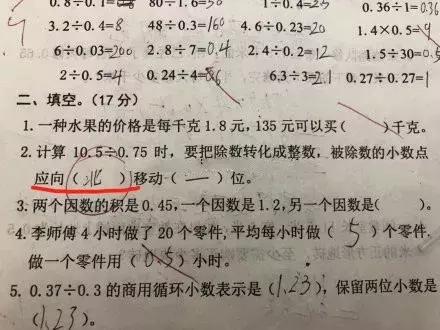 0.8÷0.1=8 80÷1.6=50 1÷0.1= 0.36÷1=0.36
3.2÷0.4=8 48÷0.3=160 4.6÷0.23=20 1.4×0.5=
6÷0.03=200 2.8÷7=0.4 2.4÷0.2=12 1.5÷30=0.5
2÷0.5=4 0.24÷4= 6.3÷3=2.1 0.27÷0.27=1
二、填空。(17分)
1. 一种水果的价格是每千克1.8元,135元可以买( )千克。
2. 计算 10.5÷0.75 时,要把除数转化成整数,被除数的小数点
应向(北)移动(一)位。
3. 两个因数的积是0.45,一个因数是1.2,另一个因数是( )。
4. 李师傅4小时做了20个零件,平均每小时做(5)个零件,
做一个零件用(0.5)小时。
5. 0.37÷0.3的商用循环小数表示是(1.23),保留两位小数是
(1.23)。